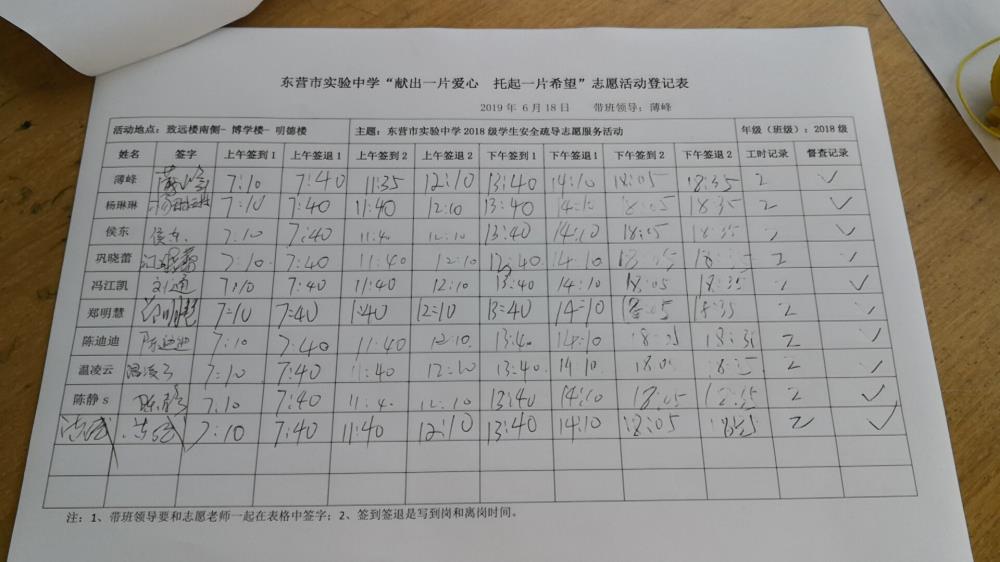 东营市实验中学“献出一片爱心 托起一片希望”志愿活动登记表
2019 年 6 月 18 日 带班领导：薄峰
活动地点：致远楼南侧- 博学楼- 明德楼 主题：东营市实验中学 2018 级学生安全疏导志愿服务活动 年级（班级）：2018 级
姓名 签字 上午签到 1 上午签退 1 上午签到 2 上午签退 2 下午签到 1 下午签退 1 下午签到 2 下午签退 2 工时记录 督查记录
薄峰 薄峰 7:10 7:40 11:35 12:10 13:40 14:10 18:05 18:35 2 ✓
杨琳琳 杨琳琳 7:10 7:40 11:40 12:10 13:40 14:10 18:05 18:35 2 ✓
侯东 侯东 7:10 7:40 11:40 12:10 13:40 14:10 18:05 18:35 2 ✓
巩晓蕾 7:10 7:40 11:40 12:10 13:40 14:10 18:05 18:35 2 ✓
冯江凯 7:10 7:40 11:40 12:10 13:40 14:10 18:05 18:35 2 ✓
郑明慧 郑明慧 7:10 7:40 1:40 12:10 13:40 14:10 18:35 2 ✓
陈迪迪 陈迪迪 7:10 7:40 11:40 12:10 13:40 14:10 18:05 18:35 2 ✓
温凌云 温凌云 7:10 7:40 11:40 12:10 13:40 14:10 18:05 18:35 2 ✓
陈静 s 陈静 7:10 7:40 11:40 12:10 13:40 14:10 18:05 2 ✓
7:10 7:40 11:40 12:10 13:40 14:10 18:05 18:35 2 ✓
注：1、带班领导要和志愿老师一起在表格中签字；2、签到签退是写到岗和离岗时间。